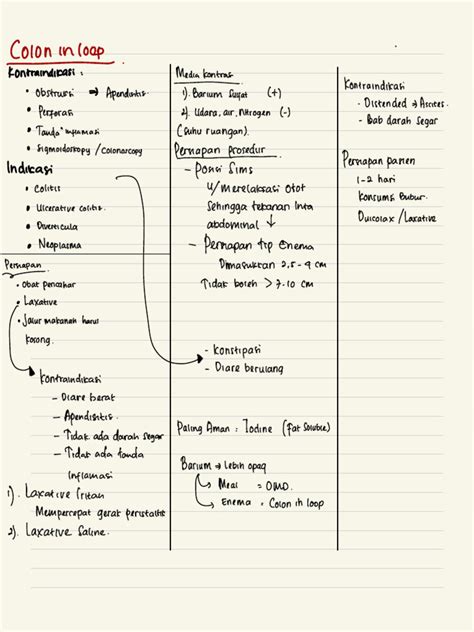 Colon in loop
Kontraindikasi :
• Obstruksi → Apendisitis.
• Perforasi
• Tanda² inflamasi
• Sigmoidoscopy / Colonoscopy
Indikasi
• Colitis
• Ulcerative colitis.
• Diverticula
• Neoplasma
Persiapan
• Obat pencahar
• Laxative
• Jalur makanan harus
kosong.
Kontraindikasi
- Diare berat
- Apendisitis
- Tidak ada darah segar
- Tidak ada tanda
Inflamasi
1). Laxative Iritan
Mempercepat gerak peristaltic
2). Laxative Saline.
Media Kontras
1). Barium Sulfat (+)
2. Udara, air, Nitrogen (-)
(Suhu ruangan).
Persiapan prosedur
- Posisi Sims
u/ Merelaksasi otot
Sehingga tekanan Intra
abdominal ↓
- Persiapan tip Enema
Dimasukkan 2,5 - 4 cm
Tidak boleh > 7-10 cm
- Konstipasi
- Diare berulang
Paling Aman : Iodine (Fat Soluble)
Barium → lebih opaq
Meal = OMD.
Enema : Colon in loop
Kontraindikasi
- Distended → Ascites.
- Bab darah segar
Persiapan pasien
1-2 hari
Konsumsi Bubur.
Dulcolax / Laxative